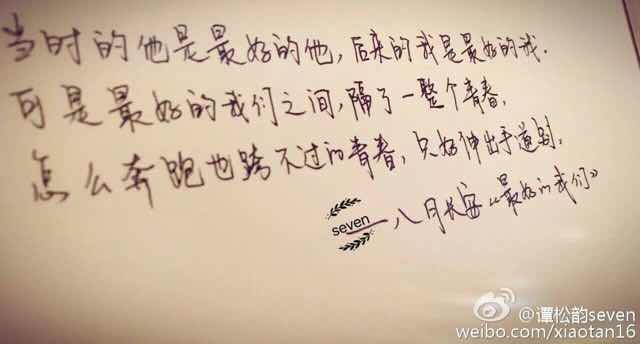 当时的他是最好的他，后来的我是最好的我.
可是最好的我们之间，隔了一整个青春，
怎么奔跑也跨不过的青春，只好伸出手道别.
seven
——八月长安《最好的我们》
@谭松韵seven
weibo.com/xiaotan16